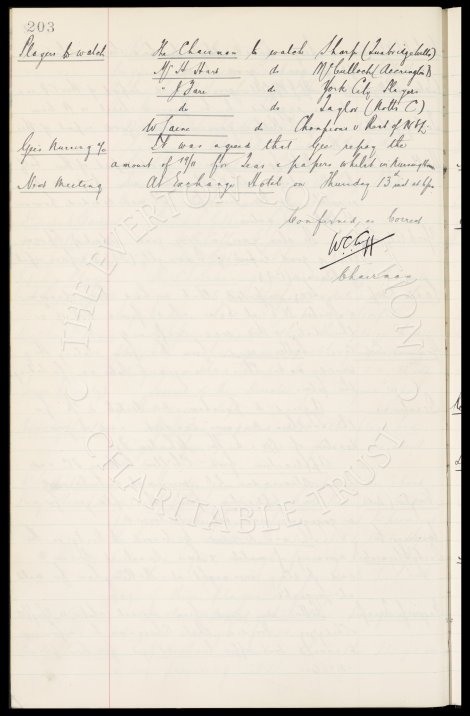 203
Players to watch The Chairman to watch Sharp (Tunbridge Wells)
Mr H Hart do McCulloch (Accrington S)
" J do York City Players
do do Taylor (Notts C)
W do Champions v Rest of N & L
Gee's Nursing &c It was agreed that Gee repay the
amount of 19/11 for teas & papers whilst in Nursing Home
Next Meeting At Exchange Hotel on Thursday 13th inst at
Confirmed as Correct
W.C. Cuff
Chairman
© THE EVERTON COLLECTION
CHARITABLE TRUST